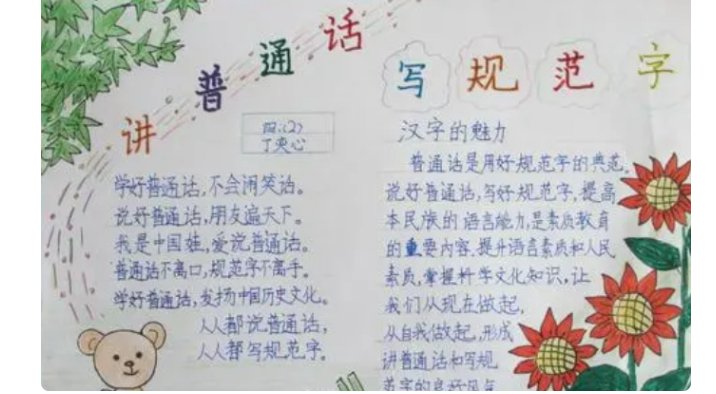 讲普通话
写规范字
四(2)
丁奕心
学好普通话,不会闹笑话。
说好普通话,朋友遍天下。
我是中国娃,爱说普通话。
普通话不离口,规范字不离手。
学好普通话,发扬中国历史文化。
人人都说普通话,
人人都写规范字。
汉字的魅力
普通话是用好规范字的典范。
说好普通话,写好规范字,提高
本民族的语言能力,是素质教育
的重要内容.提升语言素质和人民
素质,掌握科学文化知识,让
我们从现在做起,
从自我做起,形成
讲普通话和写规
范字的良好风气